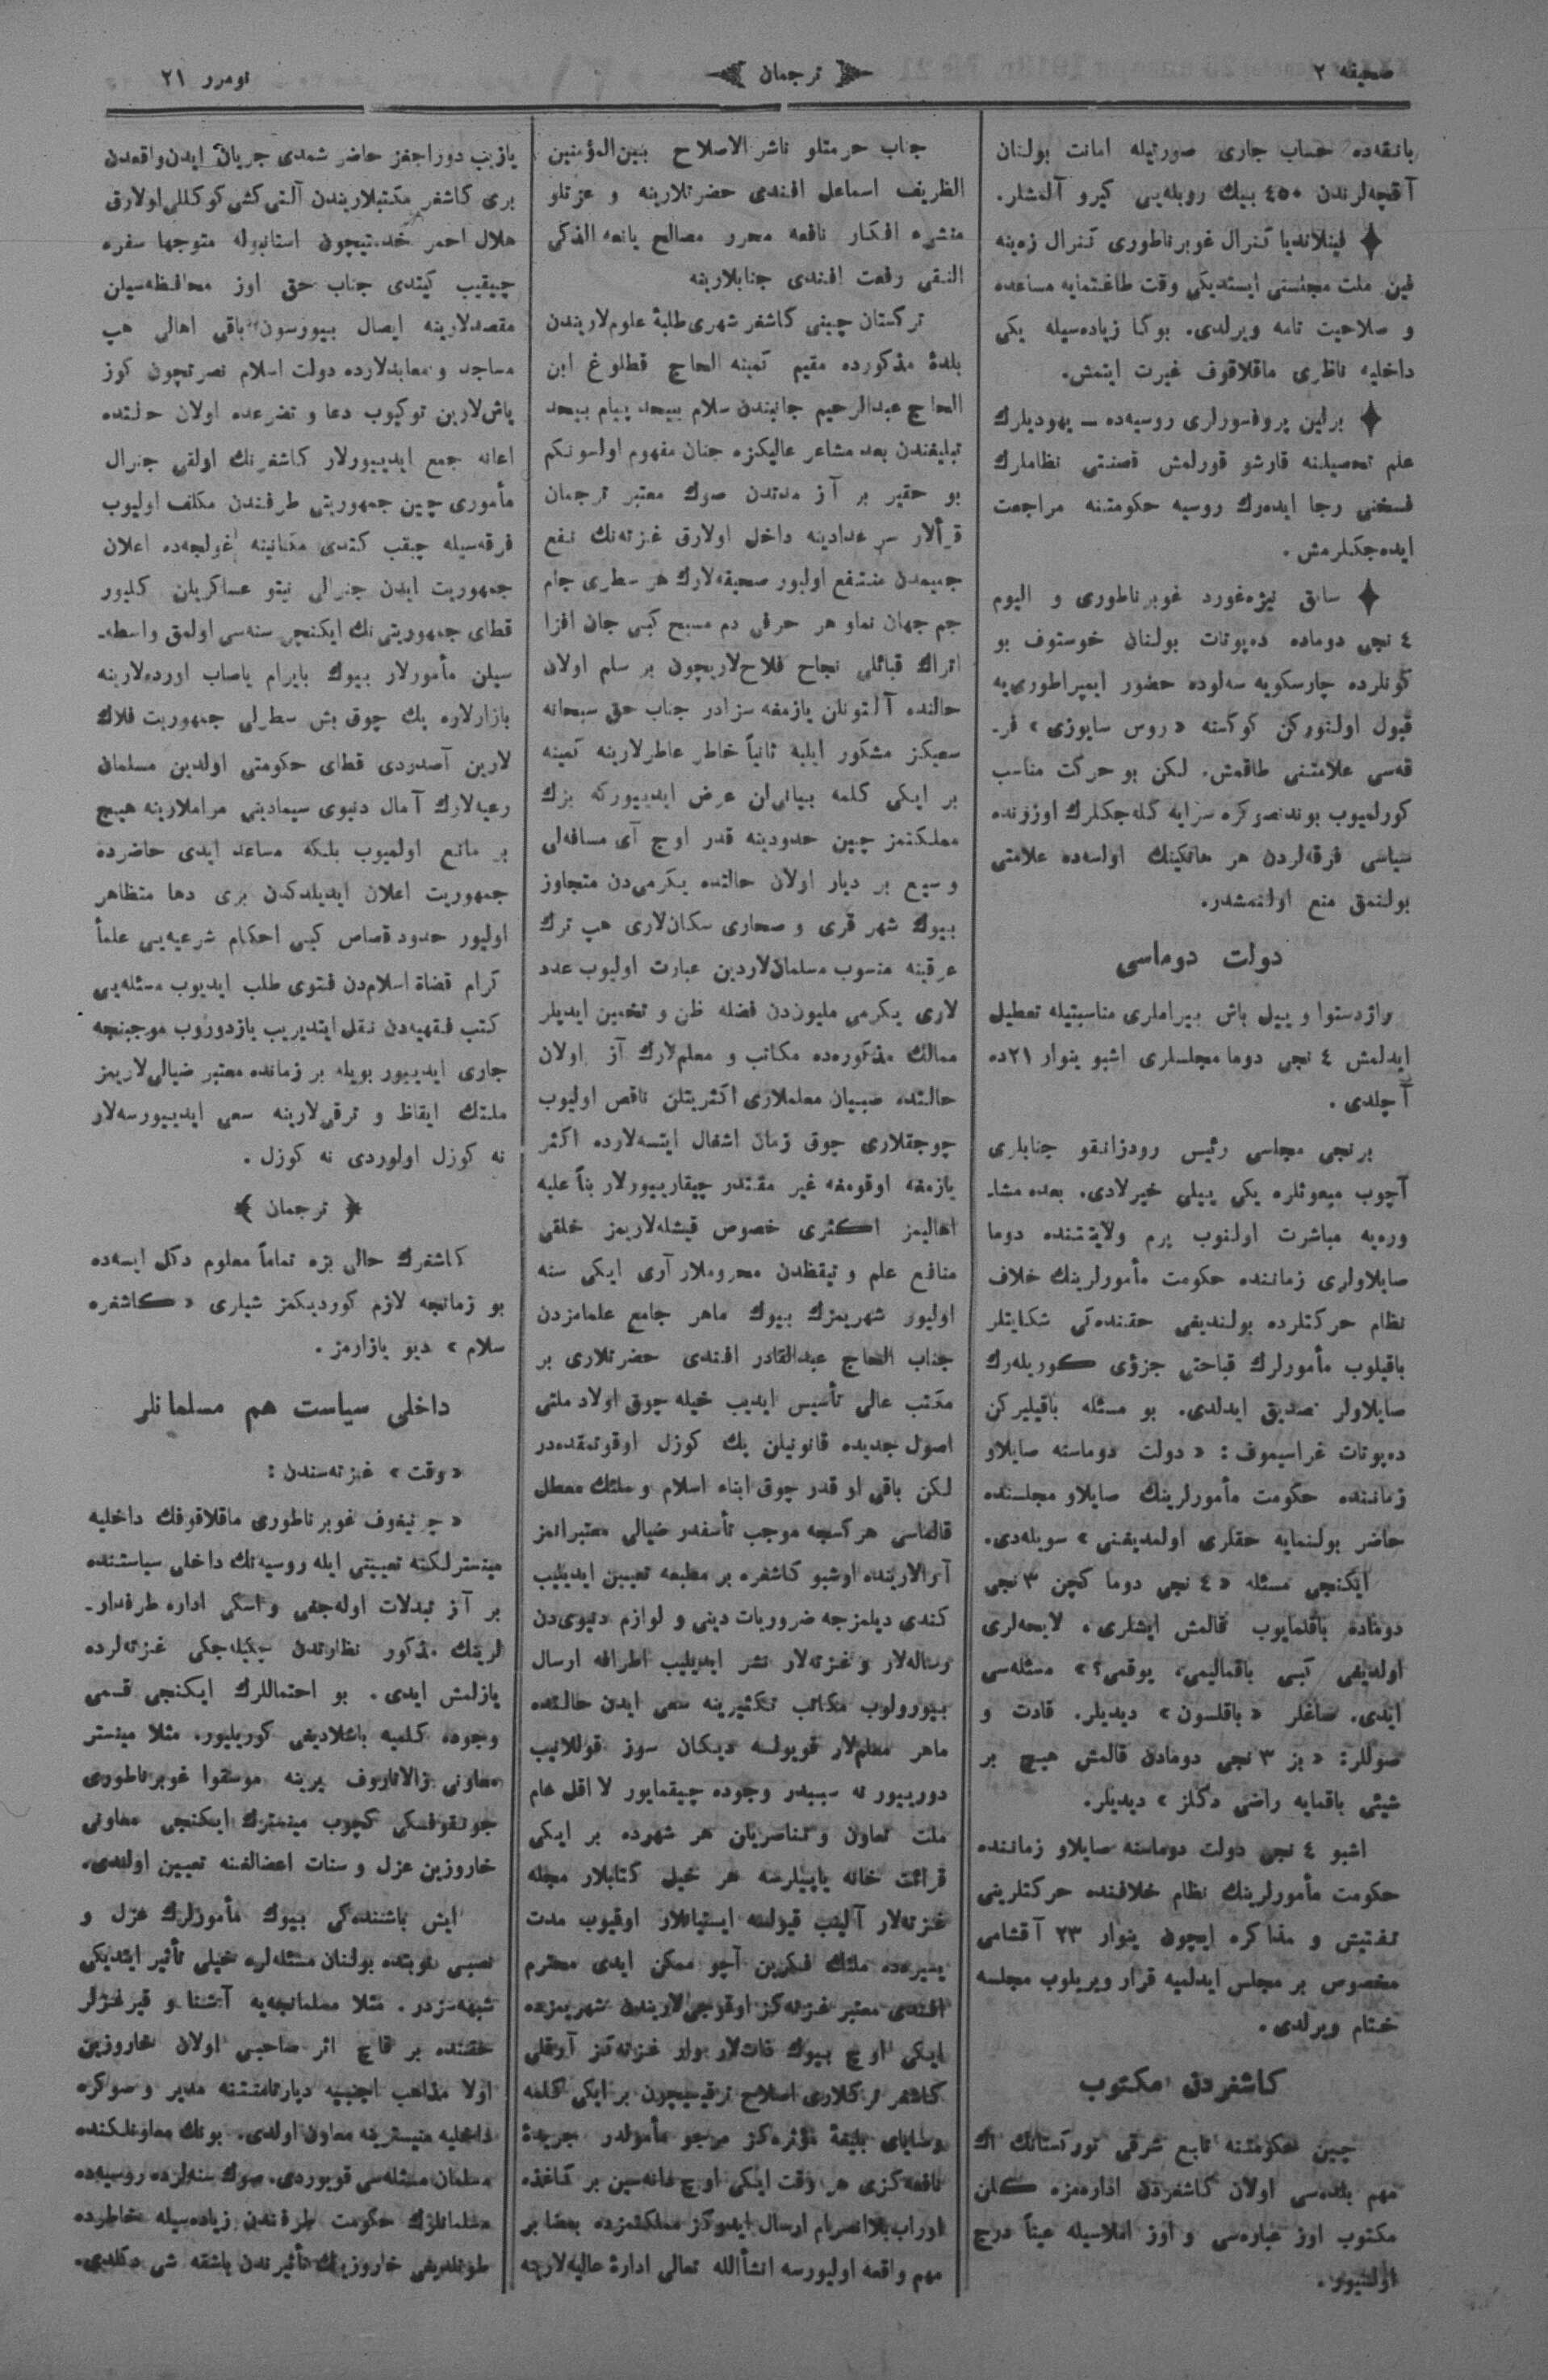 صحیفه ٢
ترجمان
نومرر ٢١
بانقه‌ده حساب جاری صورتیله امانت بولنان
آقچه‌لرندن ٤٥٠ بیك روبله‌یی کیرو آلمشلر.
فینلاندیا گنرال غوبرناطوری گنرال زه‌ینه
فین ملت مجلسنی ایستدیکی وقت طاغتمایه مساعده
و صلاحیت تامه ویرلدی. بوکا زیاده‌سیله یکی
داخلیه ناظری ماقلاقوف غیرت ایتمش.
برلین پروفسورلری روسیه‌ده ــ یهودیلرك
علم تحصیلنه قارشو قورلمش قصنتی نظاملرك
فسخنی رجا ایده‌رك روسیه حکومتنه مراجعت
ایده‌جکلرمش.
سابق نیژه‌غورد غوبرناطوری و الیوم
٤ نجی دوماده ده‌پوتات بولنان خوستوف بو
کونلرده چارسکویه سه‌لوده حضور ایمپراطوری‌یه
قبول اولنورکن کوکسنه «روس سایوزی» فر-
قه‌سی علامتنی طاقمش. لکن بو حرکت مناسب
کورلمیوب بوندنصوکره سرایه کله‌جکلرك اوزرنده
سیاسی فرقه‌لردن هر هانکینك اولسه‌ده علامتی
بولنمق منع اولنمشدر.
دولت دوماسی
راژدستوا و ییل باش بیراملری مناسبتیله تعطیل
ایدلمش ٤ نجی دوما مجلسلری اشبو ینوار ٢١ ده
آچلدی.
برنجی مجلسی رئیس رودزانقو جنابلری
آچوب مبعوثلره یکی ییلی خیرلادی. بعده مشا-
وره‌یه مباشرت اولنوب پرم ولایتنده دوما
صایلاولری زماننده حکومت مأمورلرینك خلاف
نظام حرکتلرده بولندیغی حقنده‌کی شکایتلر
باقیلوب مأمورلرك قباحتی جزؤی کوریله‌رك
صایلاولر تصدیق ایدلدی. بو مسئله باقیلیرکن
ده‌پوتات غراسیموف: «دولت دوماسنه صایلاو
زماننده حکومت مأمورلرینك صایلاو مجلسنده
حاضر بولنمایه حقلری اولمدیغنی» سویله‌دی.
ایکنجی مسئله «٤ نجی دوما کچن ٣ نجی
دوماده باقلمایوب قالمش ایشلری، لایحه‌لری
اولدیغی کبی باقمالیمی، یوقمی؟» مسئله‌سی
ایدی. صاغلر «باقلسون» دیدیلر. قادت و
صوللر: «بز ٣ نجی دومادن قالمش هیچ بر
شیئی باقمایه راضی دکلز» دیدیلر.
اشبو ٤ نجی دولت دوماسنه صایلاو زماننده
حکومت مأمورلرینك نظام خلافنده حرکتلرینی
تفتیش و مذاکره ایچون ینوار ٢٣ آقشامی
مخصوص بر مجلس ایدلمیه قرار ویریلوب مجلسه
ختام ویرلدی.
کاشغردن مکتوب
چین حکومتنه تابع شرقی تورکستانك اك
مهم بلده‌سی اولان کاشغردن اداره‌مزه کلن
مکتوب اوز عباره‌سی و اوز املاسیله عیناً درج
اولنیور.
جناب حرمتلو ناشر الاصلاح بین‌المؤمنین
الظریف اسماعل افندی حضرتلارینه و عزتلو
منشره افکار نافعه محرر مصالح یانعه الذکی
النقی رفعت افندی جنابلارینه
ترکستان چینی کاشغر شهری طلبهٔ علوم‌لاریندن
بلدهٔ مذکورده مقیم کمینه الحاج قطلوغ ابن
الحاج عبدالرحیم جانبندن سلام بیحد پیام بیحد
تبلیغندن بعد مشاعر عالیکزه جنان مفهوم اولسونکم
بو حقیر بر آز مدتدن صوك معتبر ترجمان
قرألار سرعدادینه داخل اولارق غزته‌نك نفع
جمیمدن منتفع اولیور صحیفه‌لارك هر سطری جام
جم جهان نماو هر حرفی دم مسیح کبی جان افزا
اتراك قبائلی نجاح فلاح‌لاریچون بر سلم اولان
حالنده آلتونلن یازمغه سزادر جناب حق سبحانه
سعیکز مشکور ایلیه ثانیاً خاطر عاطرلارینه کمینه
بر ایکی کلمه بیانی‌لن عرض ایدییورکه بزك
مملکتمز چین حدودینه قدر اوچ آی مسافه‌لی
وسیع بر دیار اولان حالنده یکرمی‌دن متجاوز
بیوك شهر قری و صحاری سکان‌لاری هپ ترك
عرقینه منسوب مسلمان‌لاردین عبارت اولیوب عدد
لاری یکرمی ملیون‌دن فضله ظن و تخمین ایدیلر
ممالك مذکوره‌ده مکاتب و معلم‌لارك آز اولان
حالنده صبیان معلملاری اکثریتلن ناقص اولیوب
چوجقلاری چوق زمان اشغال ایتسه‌لارده اکثر
یازمغه اوقومغه غیر مقتدر چیقارییورلار بناً علیه
اهالیمز اکثری خصوص قیشله‌لاریمز خلقی
منافع علم و تیقظدن محروملار آری ایکی سنه
اولیور شهریمزك بیوك ماهر جامع علمامزدن
جناب الحاج عبدالقادر افندی حضرتلاری بر
مکتب عالی تأسیس ایدیب خیله چوق اولاد ملتی
اصول جدیده قانونیلن یك کوزل اوقوتمقده‌در
لکن باقی او قدر چوق ابناء اسلام و ملتك معطل
قالماسی هرکسچه موجب تأسفدر ضیالی معتبرانمز
آرالارینده اوشبو کاشغره بر مطبعه تعیین ایدیلیب
کندی دیلمزجه ضروریات دینی و لوازم دنیوی‌دن
رساله‌لار و غزته‌لار نشر ایدیلیب اطرافه ارسال
بیورولوب مکاتب تکثیرینه سعی ایدن حالنده
ماهر معلم‌لار قویولسه دیکان سوز قوللانیب
دورییور نه سببدر وجوده چیقمایور لا اقل عام
ملت تعاون و تناصریلن هر شهرده بر ایکی
قرائت خانه یاپیلرسه هر خیل کتابلار مجله
غزته‌لار آلیب قیولسه ایستیانلار اوقیوب مدت
یسیره‌ده ملتك فکرین آچو ممکن ایدی محترم
افندی معتبر غزته‌کز اوقوجی‌لاریندن شهریمزده
ایکی اوچ بیوك قات‌لار وار غزته‌کز آرقلی
کاشغر ترکلاری اصلاح ترقیسیچون بر ایکی کلمه
وصایای بلیغهٔ مؤثره‌کز مرجو مأمولدر جریدهٔ
نافعه‌کزی هر وقت ایکی اوچ دانه‌سین بر کاغذه
اوراب بلا انصرام ارسال ایدوکز مملکتمزده بعضا بر
مهم واقعه اولیورسه انشأالله تعالی ادارهٔ عالیه‌لارچه
یازیب دوراجغز حاضر شمدی جریان ایدن‌واقعه‌دن
بری کاشغر مکتبلاریندن آلتی کشی کوکللی‌اولارق
هلال احمر خدمتیچون استانبوله متوجها سفره
چیقیب کیتدی جناب حق اوز محافظه‌سیلن
مقصدلارینه ایصال بییورسون باقی اهالی هپ
مساجد و معابدلارده دولت اسلام نصرتچون کوز
یاش‌لارین توکیوب دعا و تضرعده اولان حالنده
اعانه جمع ایدییورلار کاشغرنك اولقی جنرال
مأموری چین جمهوریتی طرفندن مکلف اولیوب
فرقه‌سیله چیقب کتدی مکانینه غولجه‌ده اعلان
جمهوریت ایدن جنرالی نیتو عساکریلن کلیور
قطای جمهوریتی‌نك ایکنجی سنه‌سی اولمق واسطه-
سیلن مأمورلار بیوك بایرام یاصاب اورده‌لارینه
بازارلاره یك چوق بش سطرلی جمهوریت فلاك
لارین آصدردی قطای حکومتی اولدین مسلمان
رعیه‌لارك آمال دنیوی سیمادینی مراملارینه هیچ
بر مانع اولمیوب بلکه مساعد ایدی حاضرده
جمهوریت اعلان ایدیلدکدن بری دها متظاهر
اولیور حدود قصاص کبی احکام شرعیه‌یی علمأ
کرام قضاة اسلام‌دن فتوی طلب ایدیوب مسئله‌یی
کتب فقهیه‌دن نقل ایتدیریب یازدوروب موجبنچه
جاری ایدییور بویله بر زمانده معتبر ضیالی‌لاریمز
ملتك ایقاظ و ترقی‌لارینه سعی ایدییورسه‌لار
نه کوزل اولوردی نه کوزل.
ترجمان
کاشغرك حالی بزه تماماً معلوم دکل ایسه‌ده
بو زمانچه لازم کوردیکمز شیلری «کاشغره
سلام» دیو یازارمز.
داخلی سیاست هم مسلمانلر
«وقت» غزته‌سندن:
«چرنیغوف غوبرناطوری ماقلاقوفك داخلیه
مینسترلکنه تعیینی ایله روسیه‌نك داخلی سیاستنده
بر آز تبدلات اوله‌جغی و اسکی اداره طرفدار-
لرینك مذکور نظارتدن چکیله‌جکی غزته‌لرده
یازلمش ایدی. بو احتماللرك ایکنجی قسمی
وجوده کلمیه باشلادیغی کوریلیور. مثلا مینستر
معاونی زالاتاروف یرینه موسقوا غوبرناطوری
جونقوفسکی کچوب مینسترك ایکنجی معاونی
خاروزین عزل و سنات اعضالغنه تعیین اولندی.
ایش باشنده‌کی بیوك مأمورلرك عزل و
نصبی نوبتده بولنان مسئله‌لره خیلی تأثیر ایتدیکی
شبهه‌سزدر. مثلا مسلمانچه‌یه آشنا و قیرغزلر
حقنده بر قاچ اثر صاحبی اولان خاروزین
اولا مذاهب اجنبیه دپارتامنتنه مدیر و صوکره
داخلیه مینسترینه معاون اولدی. بونك معاونلکنده
مسلمان مسئله‌سی قوبوردی. صوك سنه‌لرده روسیه‌ده
مسلمانلرك حکومت طرفندن زیاده‌سیله خاطرده
طوتلدیغی خاروزینك تأثیرندن باشقه شی دکلدی.